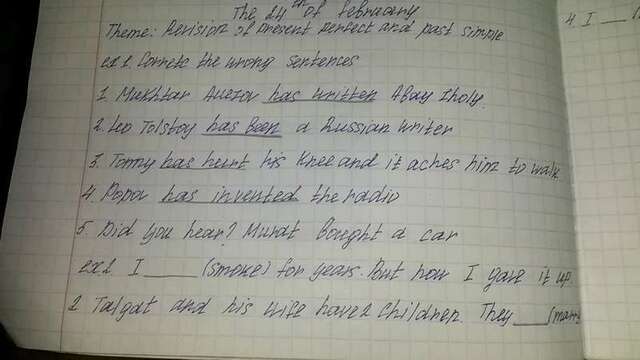 The 24th of february
4. I
Theme: Revision of present perfect and past simple
ex 1. Correts the wrong sentences
1. Mukhtar Auezov has written Abay Zholy.
2. Leo Tolstoy has been a Russian writer
3. Tommy has hurt his knee and it aches him to walk.
4. Popov has invented the radio
5. Did you hear? Murat bought a car
ex 2 I ____ (smoke) for years. But now I gave it up.
2 Talgat and his wife have 2 children. They ____ (marr